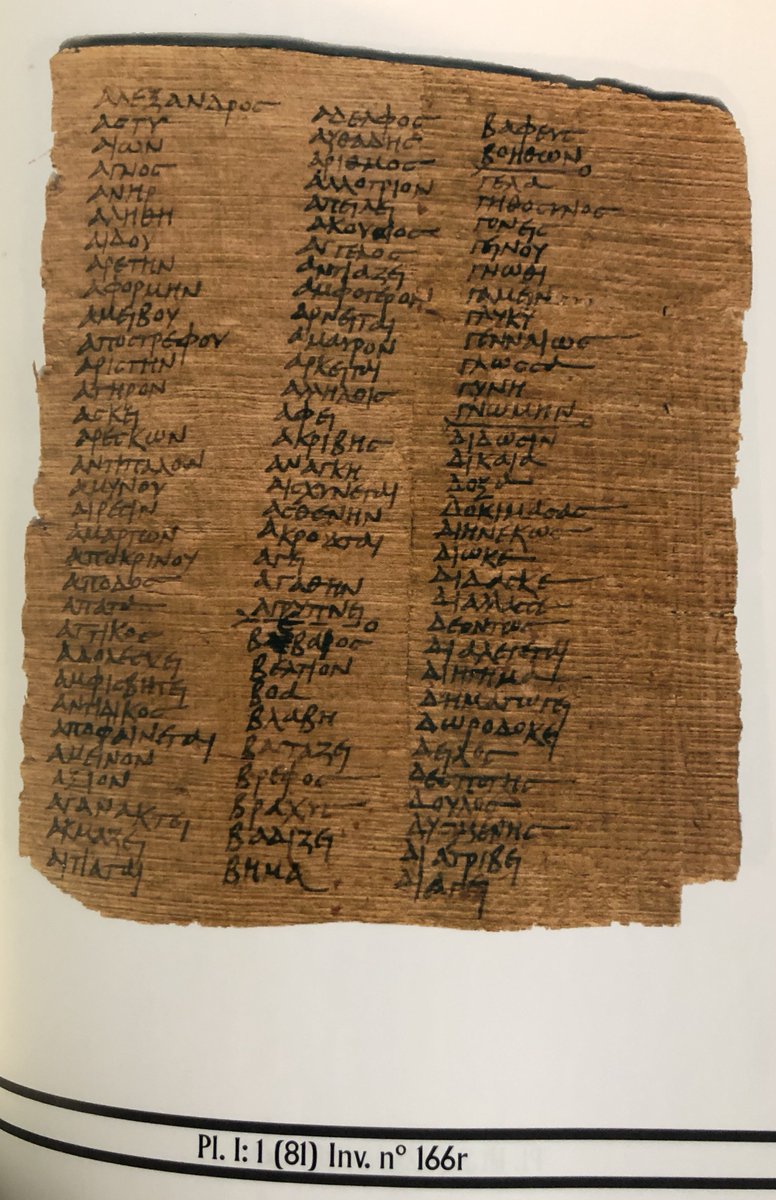 ΑΛΕΞΑΝΔΡΟΣ
ΑΣΤΥ
ΑΙΩΝ
ΑΓΝΟΣ
ΑΝΗΡ
ΑΛΗΘΗ
ΑΙΔΟΥ
ΑΡΕΤΗΝ
ΑΦΟΡΜΗΝ
ΑΜΕΙΒΟΥ
ΑΠΟΣΤΡΕΦΟΥ
ΑΡΙΣΤΗΝ
ΑΓΗΡΟΝ
ΑΣΚΕΙ
ΑΡΕΣΚΩΝ
ΑΝΤΙΠΑΛΟΝ
ΑΜΥΝΟΥ
ΑΙΡΕΣΙΝ
ΑΜΑΡΤΩΝ
ΑΠΟΚΡΙΝΟΥ
ΑΠΟΔΟΣ
ΑΠΑΤΑ
ΑΤΤΙΚΟΣ
ΑΔΟΛΕΣΧΕΙ
ΑΜΦΙΣΒΗΤΕΙ
ΑΝΤΙΔΙΚΟΣ
ΑΠΟΦΑΙΝΕΤΑΙ
ΑΜΕΙΝΟΝ
ΑΞΙΟΝ
ΑΓΑΝΑΚΤΕΙ
ΑΚΜΑΖΕΙ
ΑΙΤΙΑΤΑΙ
ΑΔΕΛΦΟΣ
ΑΥΘΑΔΗΣ
ΑΡΙΘΜΟΣ
ΑΛΛΟΤΡΙΟΝ
ΑΠΕΙΛΕΙ
ΑΓΓΕΛΟΣ
ΑΝΤΙΑΖΕΙ
ΑΜΦΟΤΕΡΟΝ
ΑΡΝΕΙΤΑΙ
ΑΜΑΥΡΟΝ
ΑΡΚΕΙΤΑΙ
ΑΛΛΗΛΟΙΣ
ΑΦΕΙ
ΑΚΡΙΒΗΣ
ΑΝΑΓΚΗ
ΑΙΣΧΥΝΕΤΑΙ
ΑΣΘΕΝΗΝ
ΑΚΡΟΑΤΑΙ
ΑΓΕΙ
ΑΓΑΘΗΝ
ΑΓΡΥΠΝΕΙ
ΒΑΡΒΑΡΟΣ
ΒΕΛΤΙΟΝ
ΒΟΑ
ΒΛΑΒΗ
ΒΑΣΤΑΖΕΙ
ΒΡΕΦΟΣ
ΒΡΑΧΥΣ
ΒΑΔΙΖΕΙ
ΒΗΜΑ
ΒΑΦΕΥΣ
ΒΟΗΘΩΝ
ΓΕΛΑ
ΓΗΘΟΣΥΝΟΣ
ΓΟΝΕΙΣ
ΓΕΙΝΟΥ
ΓΝΩΘΙ
ΓΑΜΕΙΝ
ΓΛΥΚΥ
ΓΕΝΝΑΙΩΣ
ΓΛΩΣΣΑ
ΓΥΝΗ
ΓΝΩΜΗΝ
ΔΙΔΩΣΙΝ
ΔΙΚΑΙΑ
ΔΟΞΑ
ΔΟΚΙΜΑΣΑΣ
ΔΙΗΝΕΚΩΣ
ΔΙΩΚΕ
ΔΙΔΑΣΚΕ
ΔΙΑΛΛΑΣΣΕ
ΔΕΟΝΤΩΣ
ΔΙΑΛΕΓΕΤΑΙ
ΔΙΗΓΗΜΑ
ΔΗΜΑΓΩΓΕΙ
ΔΩΡΟΔΟΚΕΙ
ΔΕΙΛΟΣ
ΔΕΣΠΟΤΗΣ
ΔΟΥΛΟΣ
ΔΥΣΓΕΝΗΣ
ΔΙΑΤΡΙΒΕΙ
ΔΙΑΓΕΙ
Pl. I: 1 (81) Inv. nº 166r